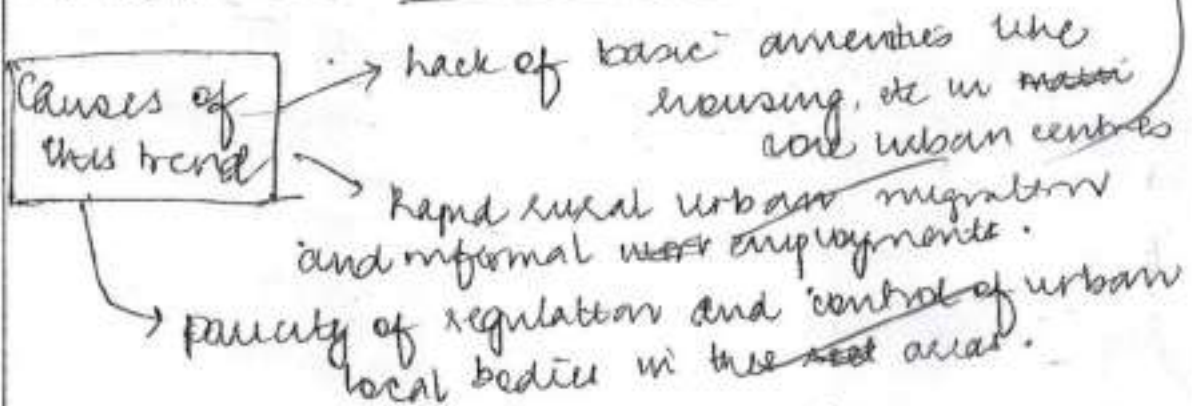 Causes of
this trend
→ Lack of basic amenities like
housing, etc in
core urban centres
→ Rapid rural urban migration
and informal employments.
→ paucity of regulation and control of urban
local bodies in these areas.